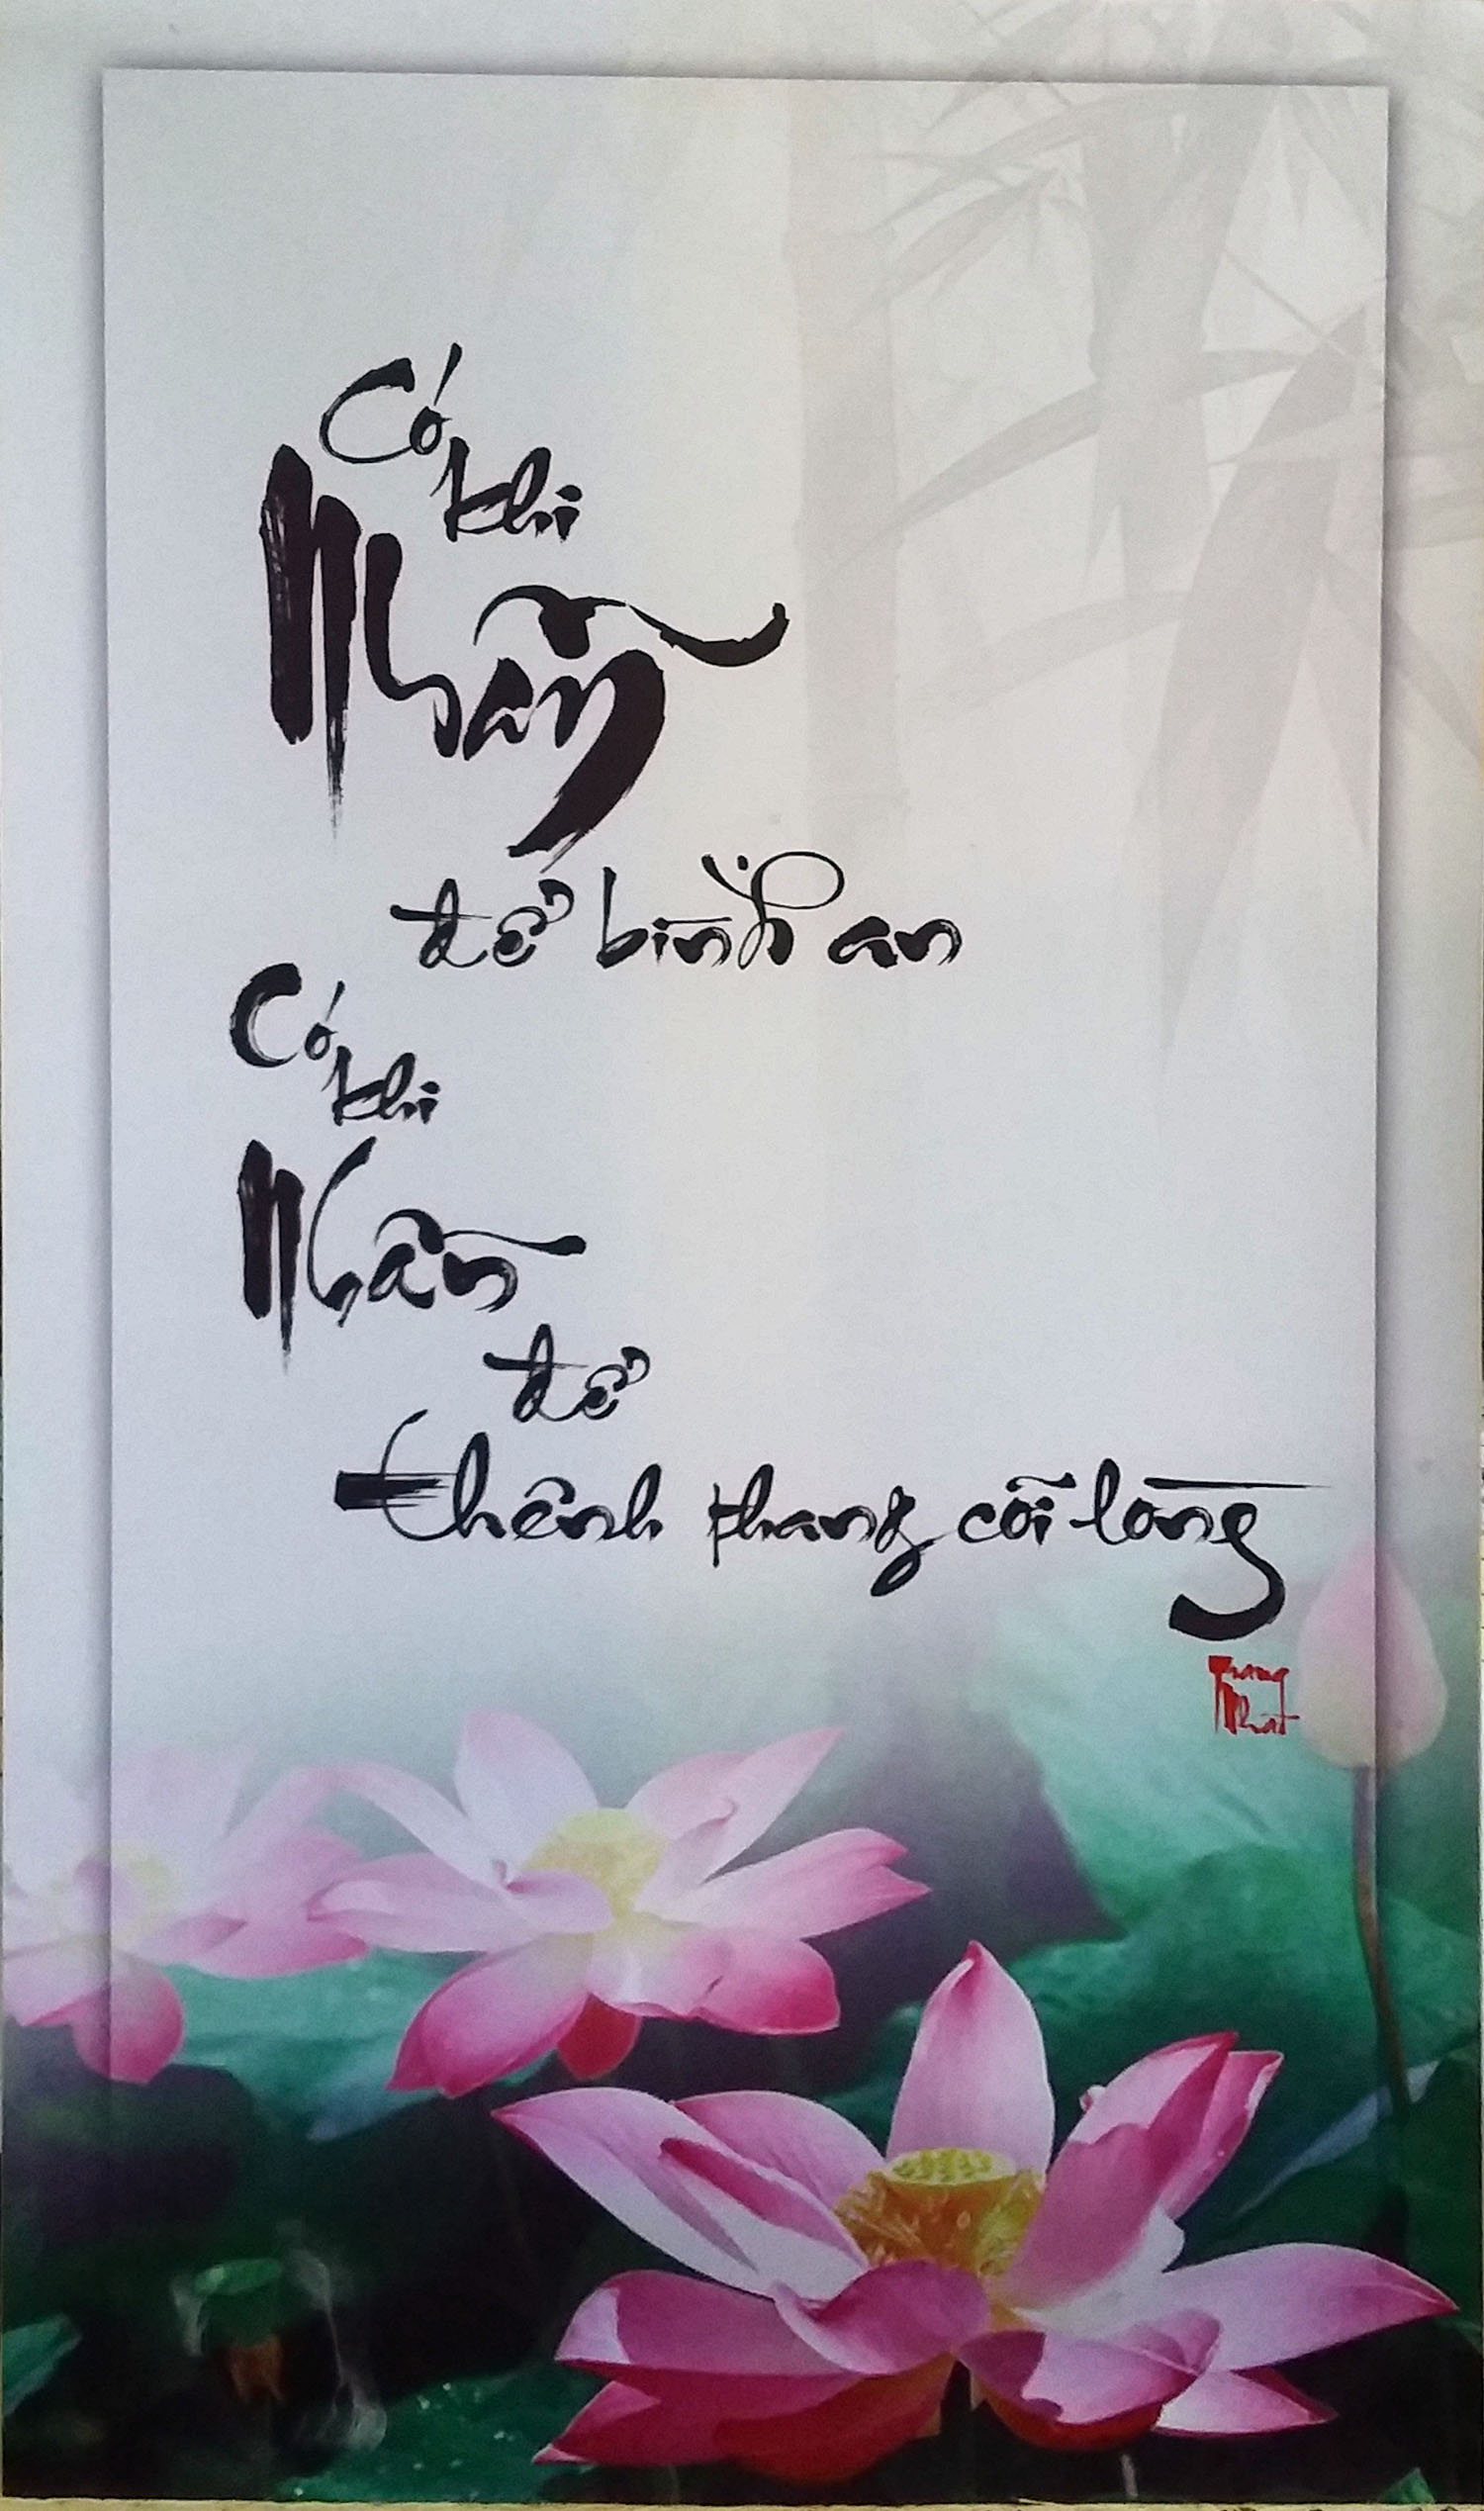 Có
khi
Nhẫn
để bình an
Có
khi
Nhẫn
để
thênh thang cõi lòng